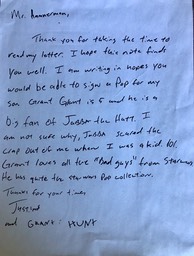 Mr. Hannerman,
Thank you for taking the time to
read my letter. I hope this note finds
you well. I am writing in hopes you
would be able to sign a Pop for my
son Grant. Grant is 5 and he is a
big fan of Jabba the Hutt. I
am not sure why, Jabba scared the
crap out of me when I was a kid. lol.
Grant loves all the "Bad guys" from Starwars
He has quite the starwars Pop collection.
Thanks for your time,
Justin
and Grant